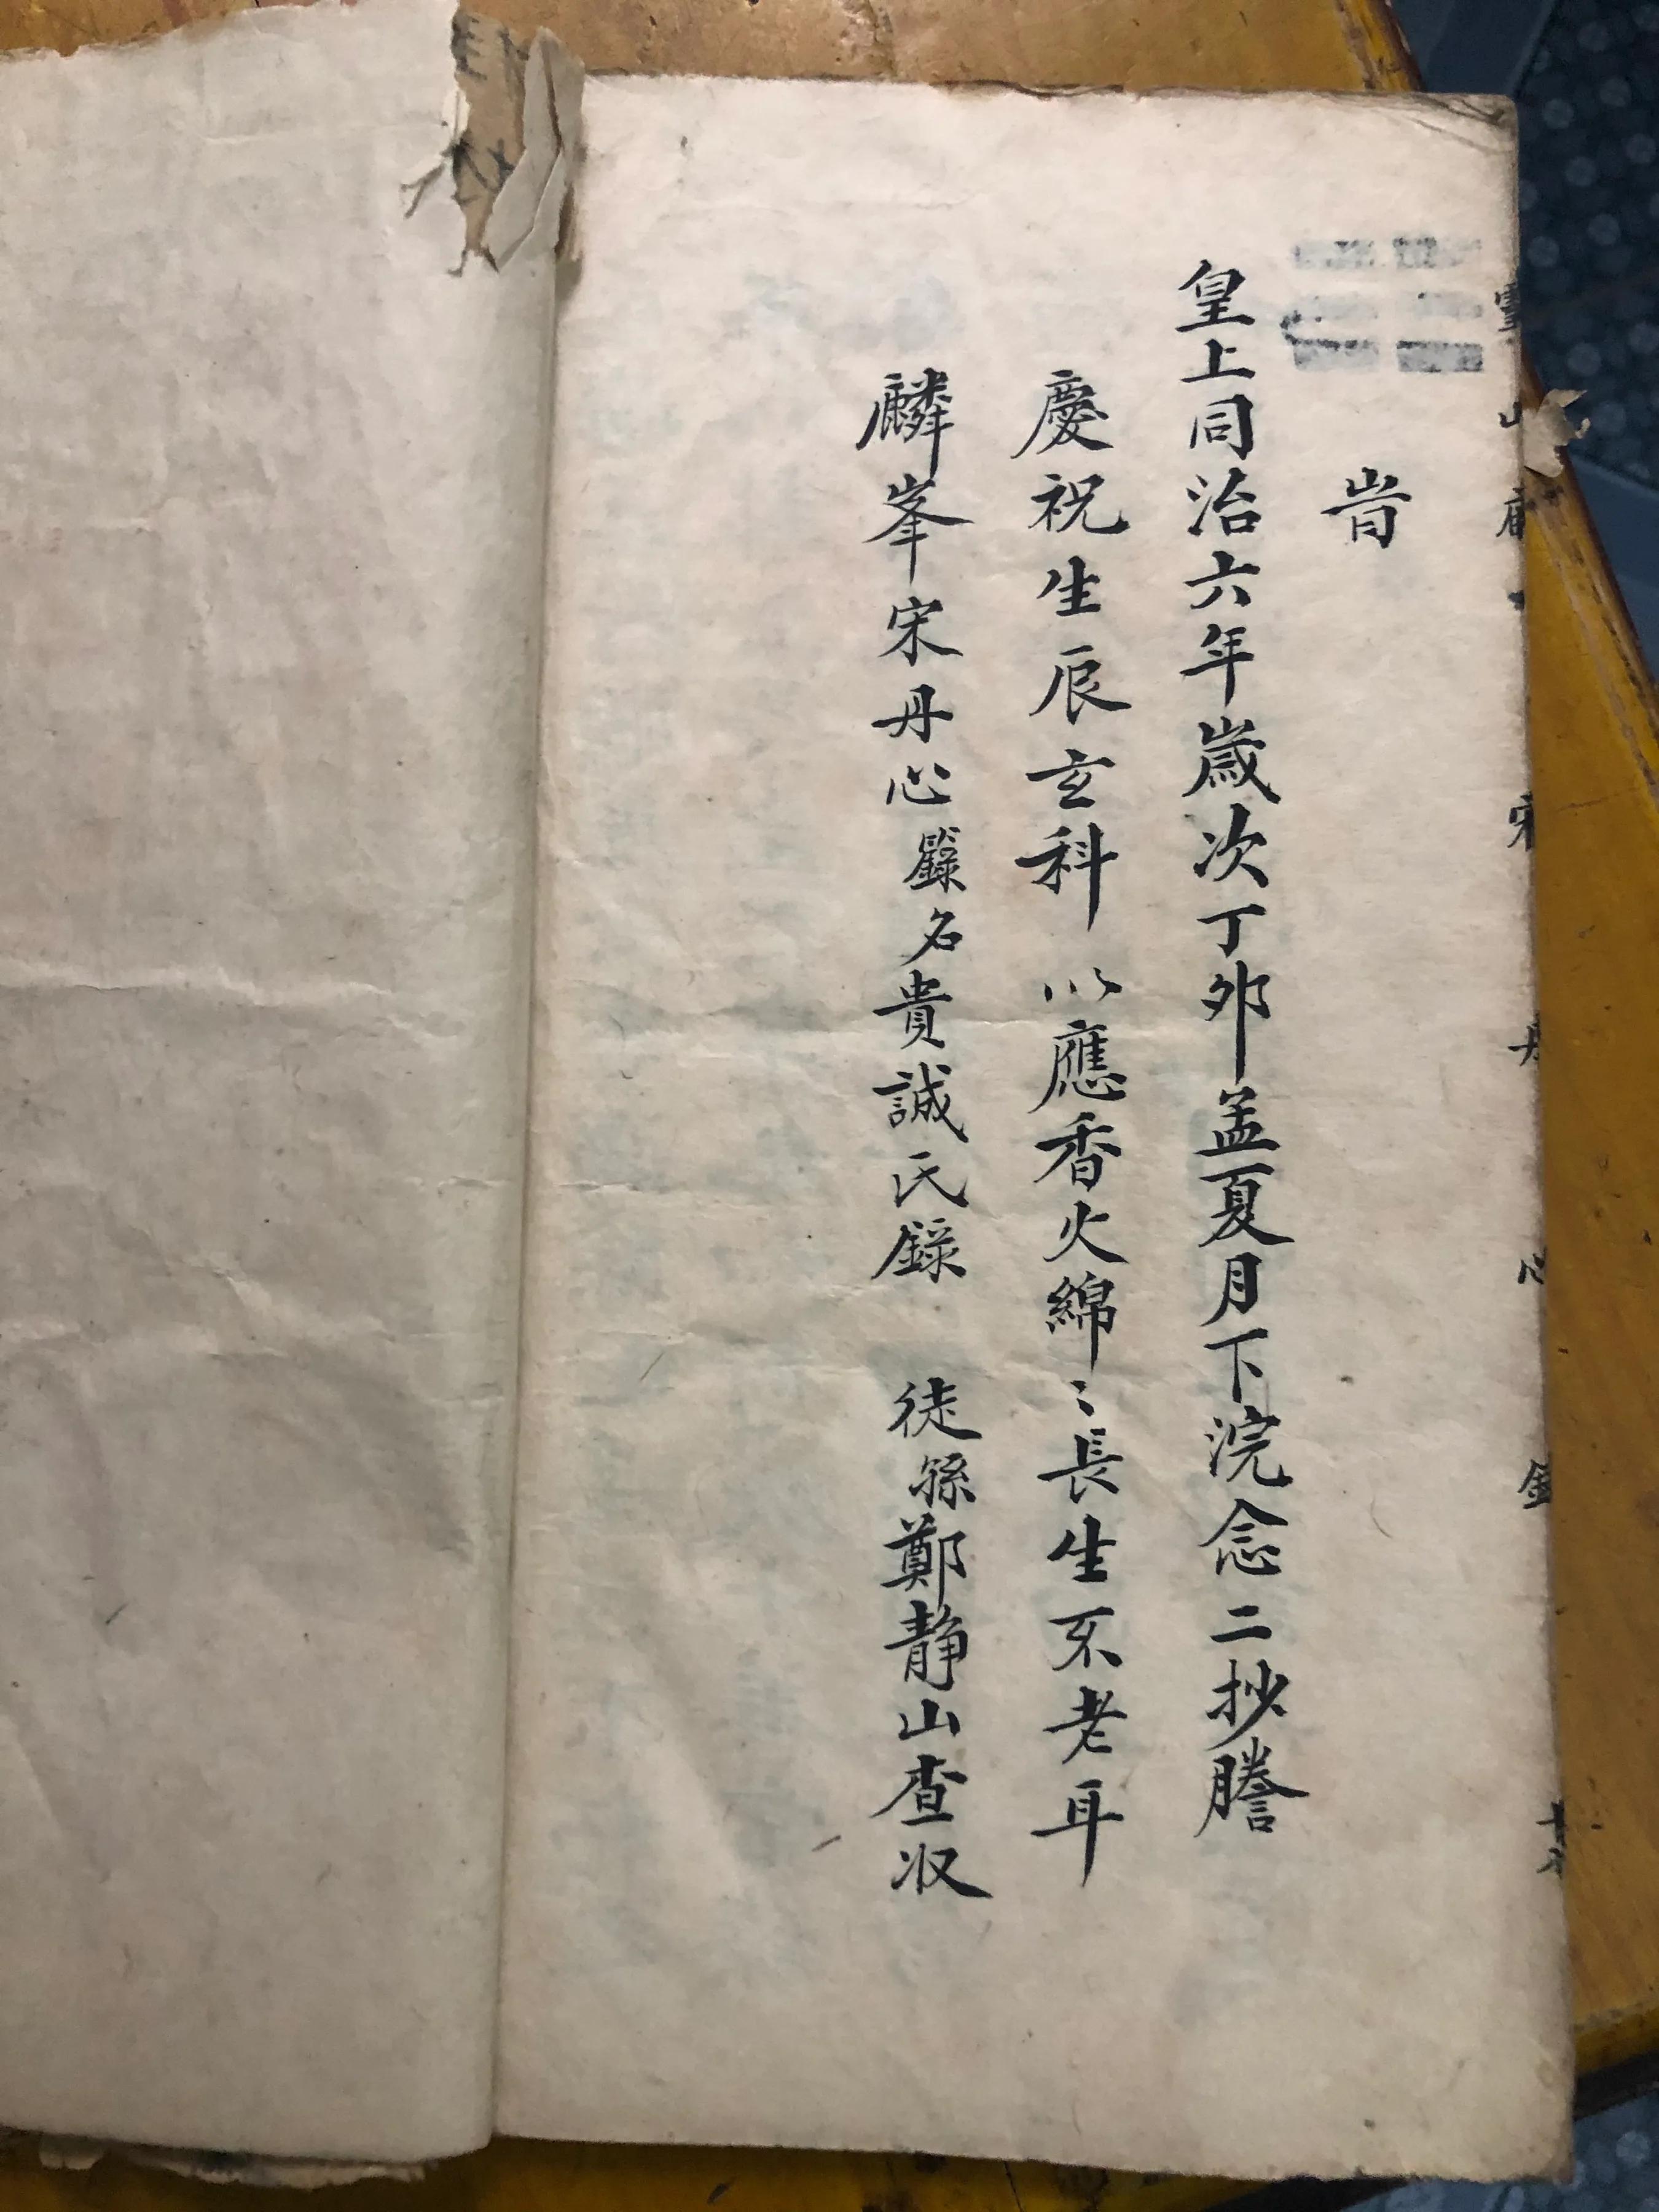 旹
皇上同治六年歲次丁卯孟夏月下浣念二抄謄
慶祝生辰玄科 以應香火綿〻長生不老耳
麟峯宋丹心籙名貴誠氏錄 徒孫鄭静山查收